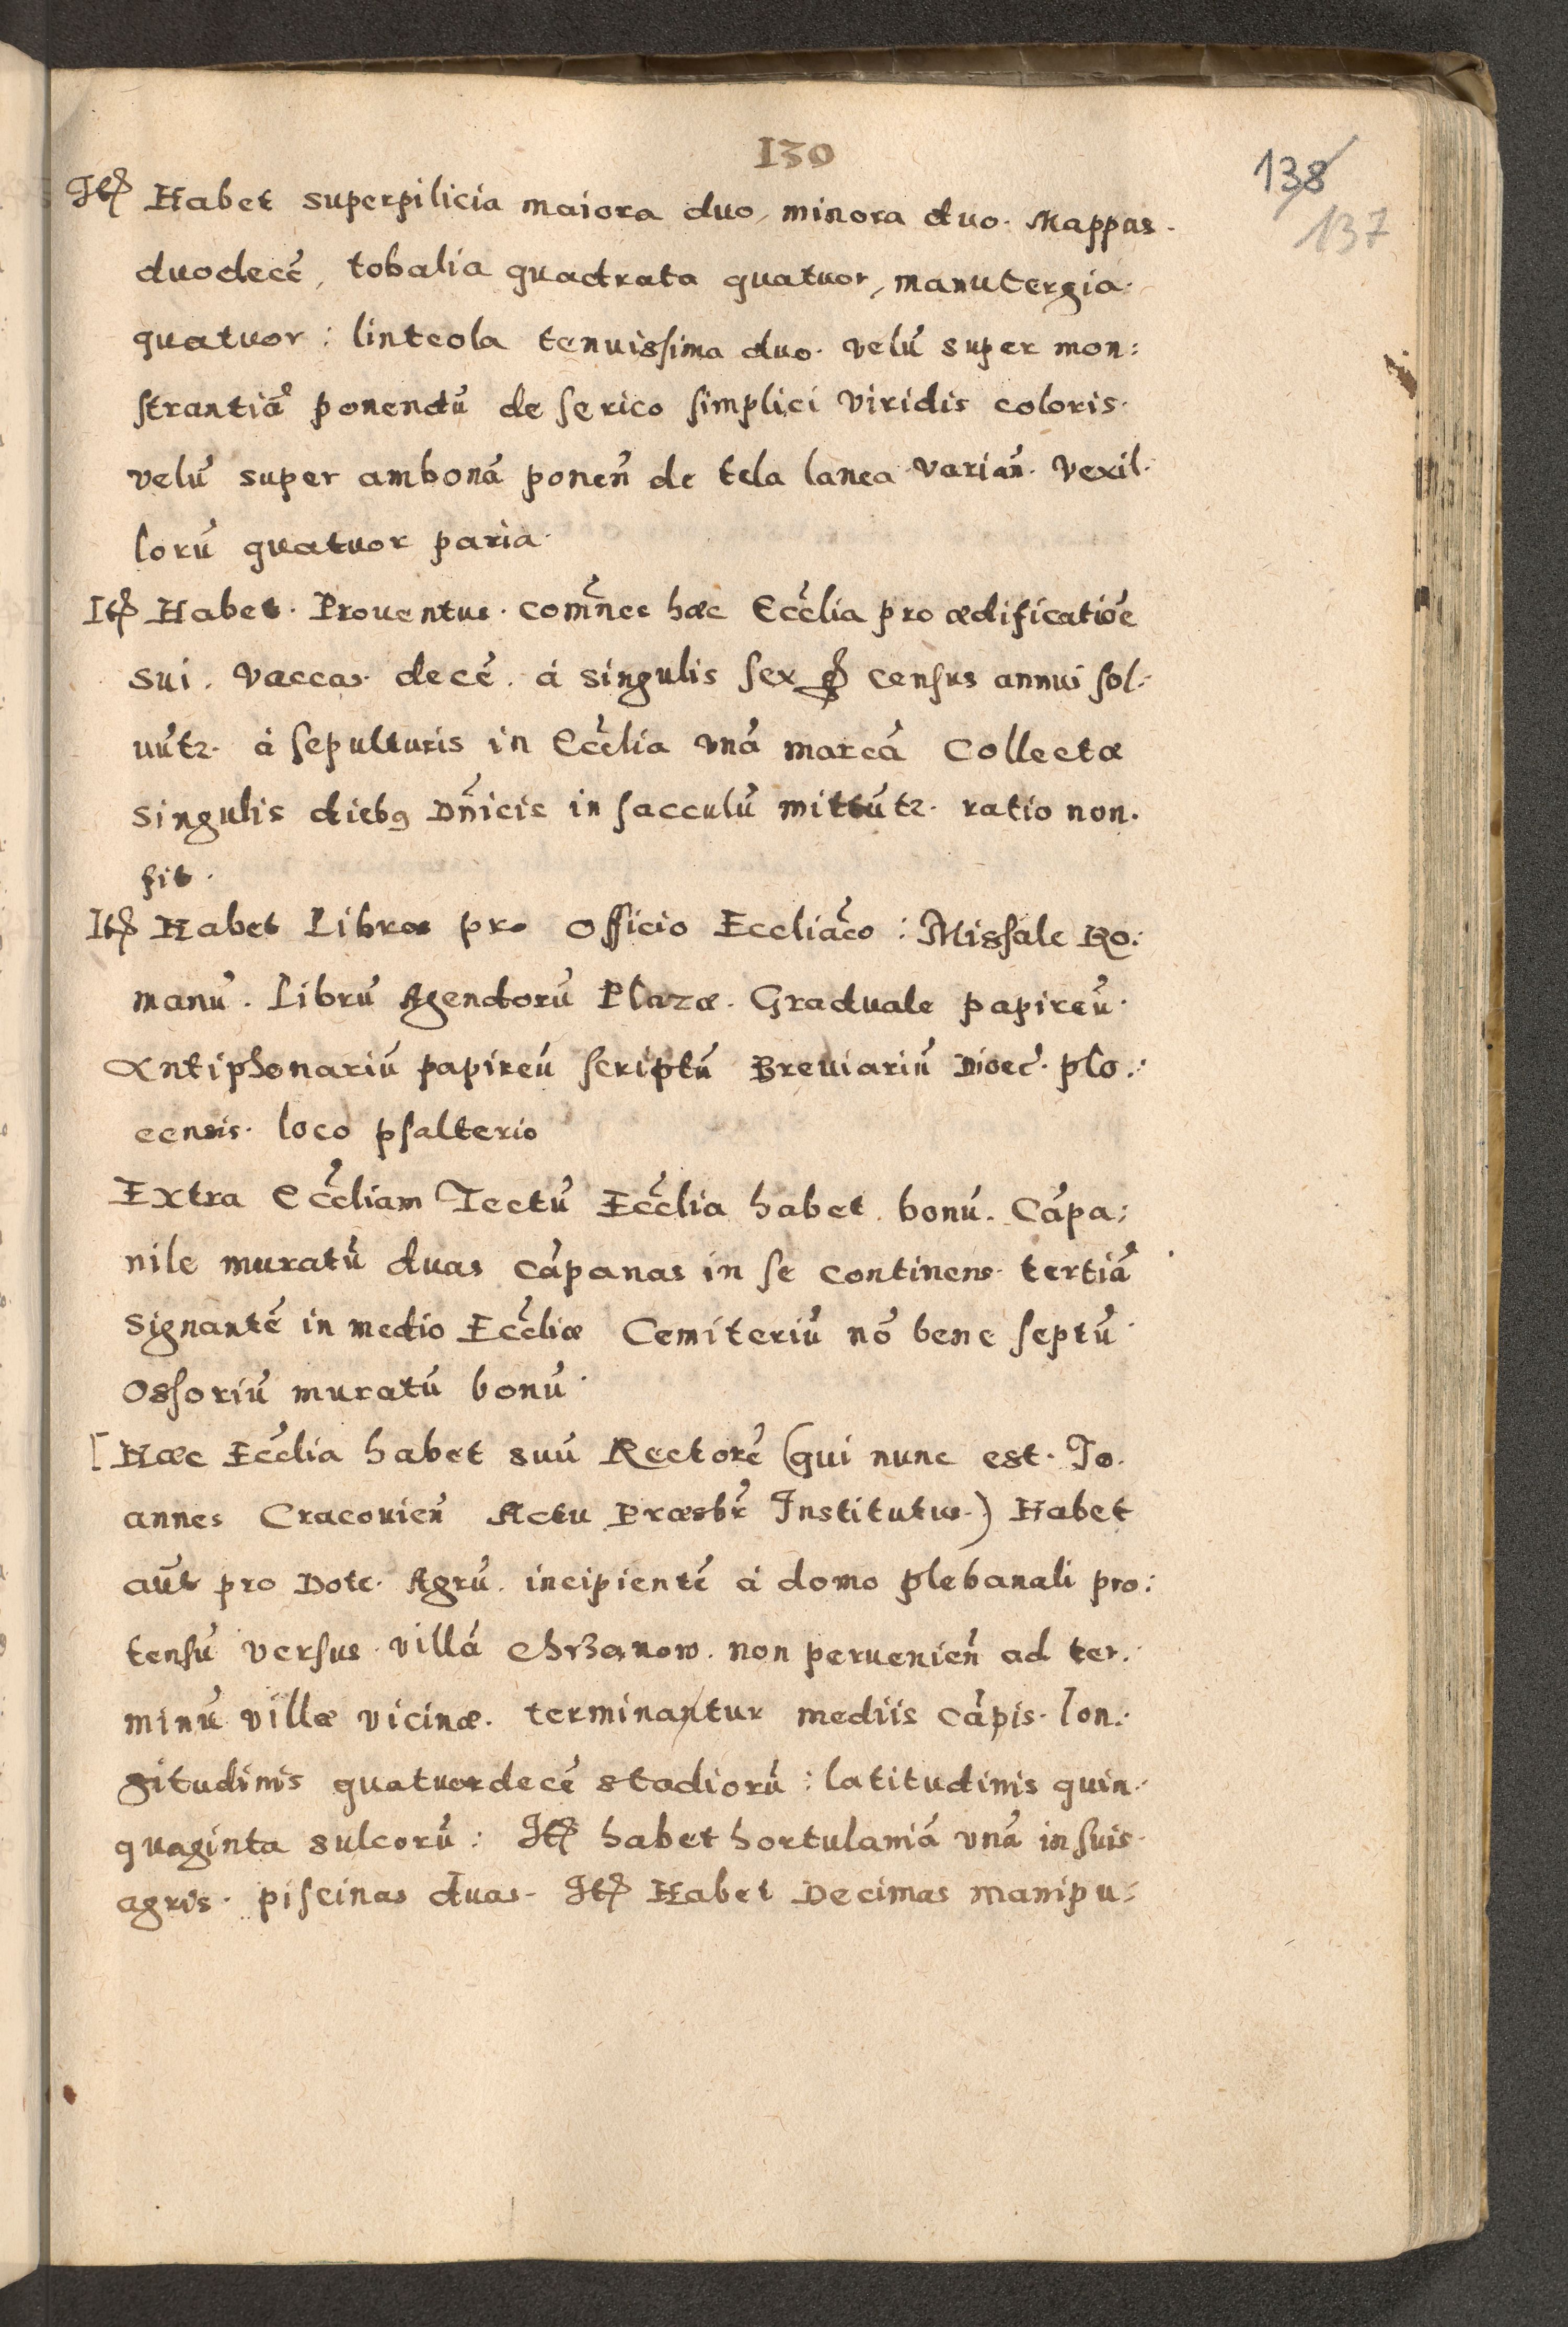 130
138
137
Itē Habet superpilicia maiora duo, minora duo. Mappas.
duodecē, tobalia quadrata quatuor, manutergia.
quatuor: linteola tenuissima duo. velū super mon:
strantiā ponendū de serico simplici viridis coloris.
velū super ambonā ponen̄ de tela lanea varian̄. Vexil.
lorū quatuor paria.
Itē Habet. Prouentus. com̄nes hæc Eccl̄ia pro ædificatiōe
sui. Vaccas decē. á singulis sex census annui sol.
uūtr. á sepulturis in Eccl̄ia vnā marcā Collectæ
singulis diebꝰ Dn̄icis in sacculū mittūtr. ratio non.
fit.
Itē Habet Libros pro Officio Eccliāco: Missale Ro:
manū. Librū Agendorū Plazæ. Graduale papireū.
Antiphonariū papireū scriptū Breuiariū Dioec̄. plo:
censis. loco psalterio
Extra Eccl̄iam Tectū Eccl̄ia habet bonū. Cāpa:
nile muratū duas cāpanas in se continens. tertiā
signantē in medio Eccl̄iæ Cemiteriū nō bene septū.
Ossoriū muratū bonū.
[Hæc Eccl̄ia habet suū Rectorē (qui nunc est. Jo.
annes Cracouien̄ Actu Præsbr̄ Institutus.) Habet
aūt pro Dote. Agrū. incipientē á domo plebanali pro:
tensū versus villā Chrzanow. non peruenien̄ ad ter.
minū villæ vicinæ. terminantur mediis cāpis. lon:
gitudinis quatuordecē stadiorū: latitudinis quin.
quaginta sulcorū: Itē habet hortulaniā vnā in suis.
agris. piscinas duas. Itē Habet Decimas manipu: